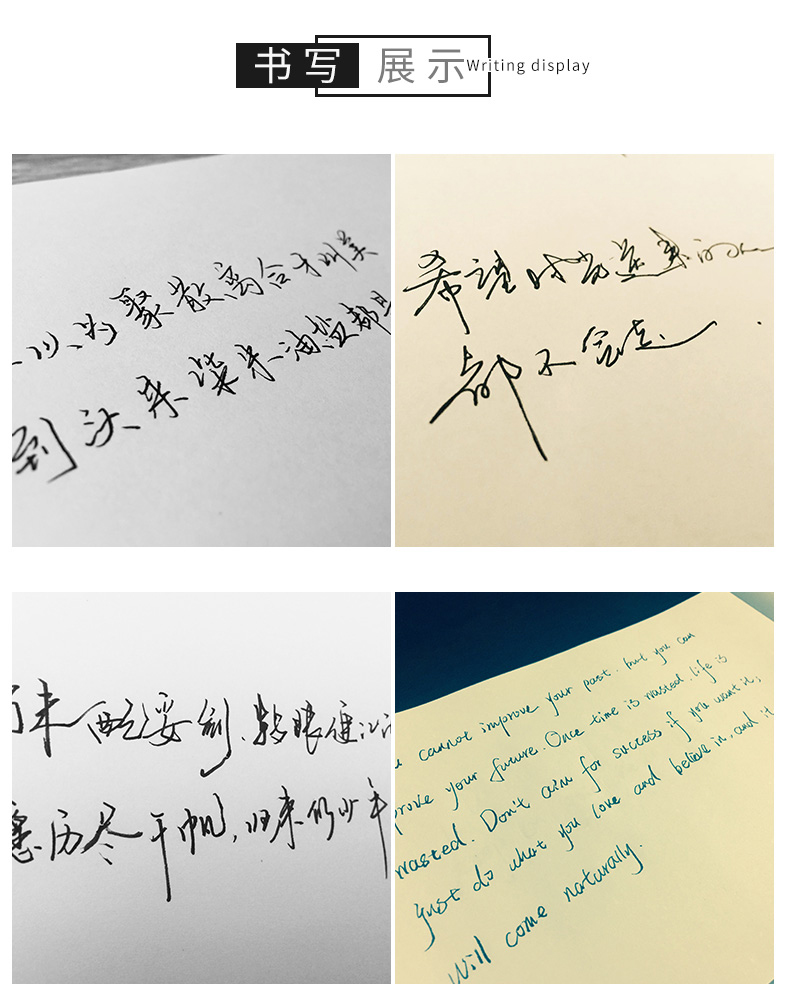 书写 展示 Writing display
以为聚散离合才叫美
到头来柴米油盐都是
希望时光逆来的
都不会走.
配妥剑.转眼便江
愿历尽千帆,归来仍少年
cannot improve your past. but you can
prove your future. Once time is wasted. life is
wasted. Don't aim for success if you want it,
just do what you love and believe in, and it
will come naturally.